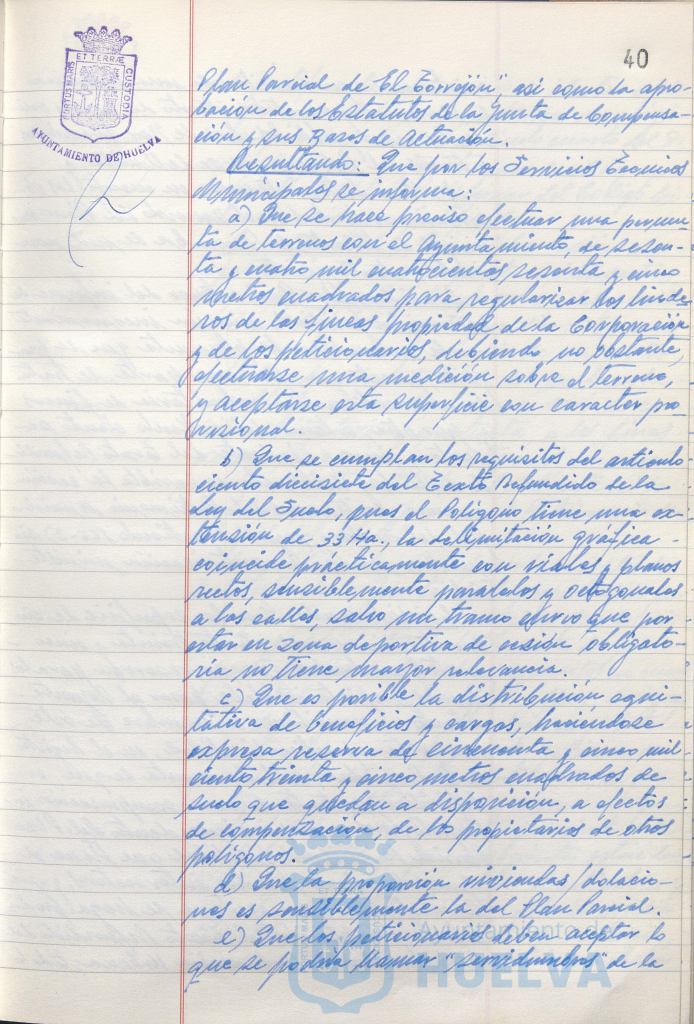 40
ET TERRÆ
PORTUS MARIS
CUSTODIA
AYUNTAMIENTO DE HUELVA
Plan Parcial de El Torrejón", así como la apro-
bación de los Estatutos de la Junta de Compensa-
ción y sus Bases de Actuación.
Resultando: Que por los Servicios Tecnicos
Municipales se informa:
a) Que se hace preciso efectuar una permu-
ta de terrenos con el Ayuntamiento, de sesen-
ta y cuatro mil cuatrocientos sesenta y cinco
metros cuadrados para regularizar los linde-
ros de las fincas propiedad de la Corporación
y de los peticionarios, debiendo no obstante,
efectuarse una medición sobre el terreno,
y aceptarse esta superficie con caracter pro-
visional.
b) Que se cumplan los requisitos del articulo
ciento diecisiete del Texto Refundido de la
Ley del Suelo, pues el Poligono tiene una ex-
tensión de 33 Ha., la delimitación gráfica
coincide prácticamente con viales y planos
rectos, sensiblemente paralelos y octogonales
a las calles, salvo un tramo curvo que por
estar en zona deportiva de cesión obligato-
ria no tiene mayor relevancia.
c) Que es posible la distribución equi-
tativa de beneficios y cargas, haciéndose
expresa reserva de cincuenta y cinco mil
ciento treinta y cinco metros cuadrados de
suelo que quedan a disposición, a efectos
de compensación, de los propietarios de otros
polígonos.
d) Que la proporción viviendas/dotacio-
nes es sensiblemente la del Plan Parcial.
e) Que los peticionario deben aceptar lo
que se podria llamar "servidumbres" de la
Ayuntamiento de
HUELVA